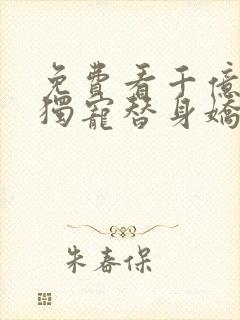 免費看千億
獨寵替身嬌
朱春保